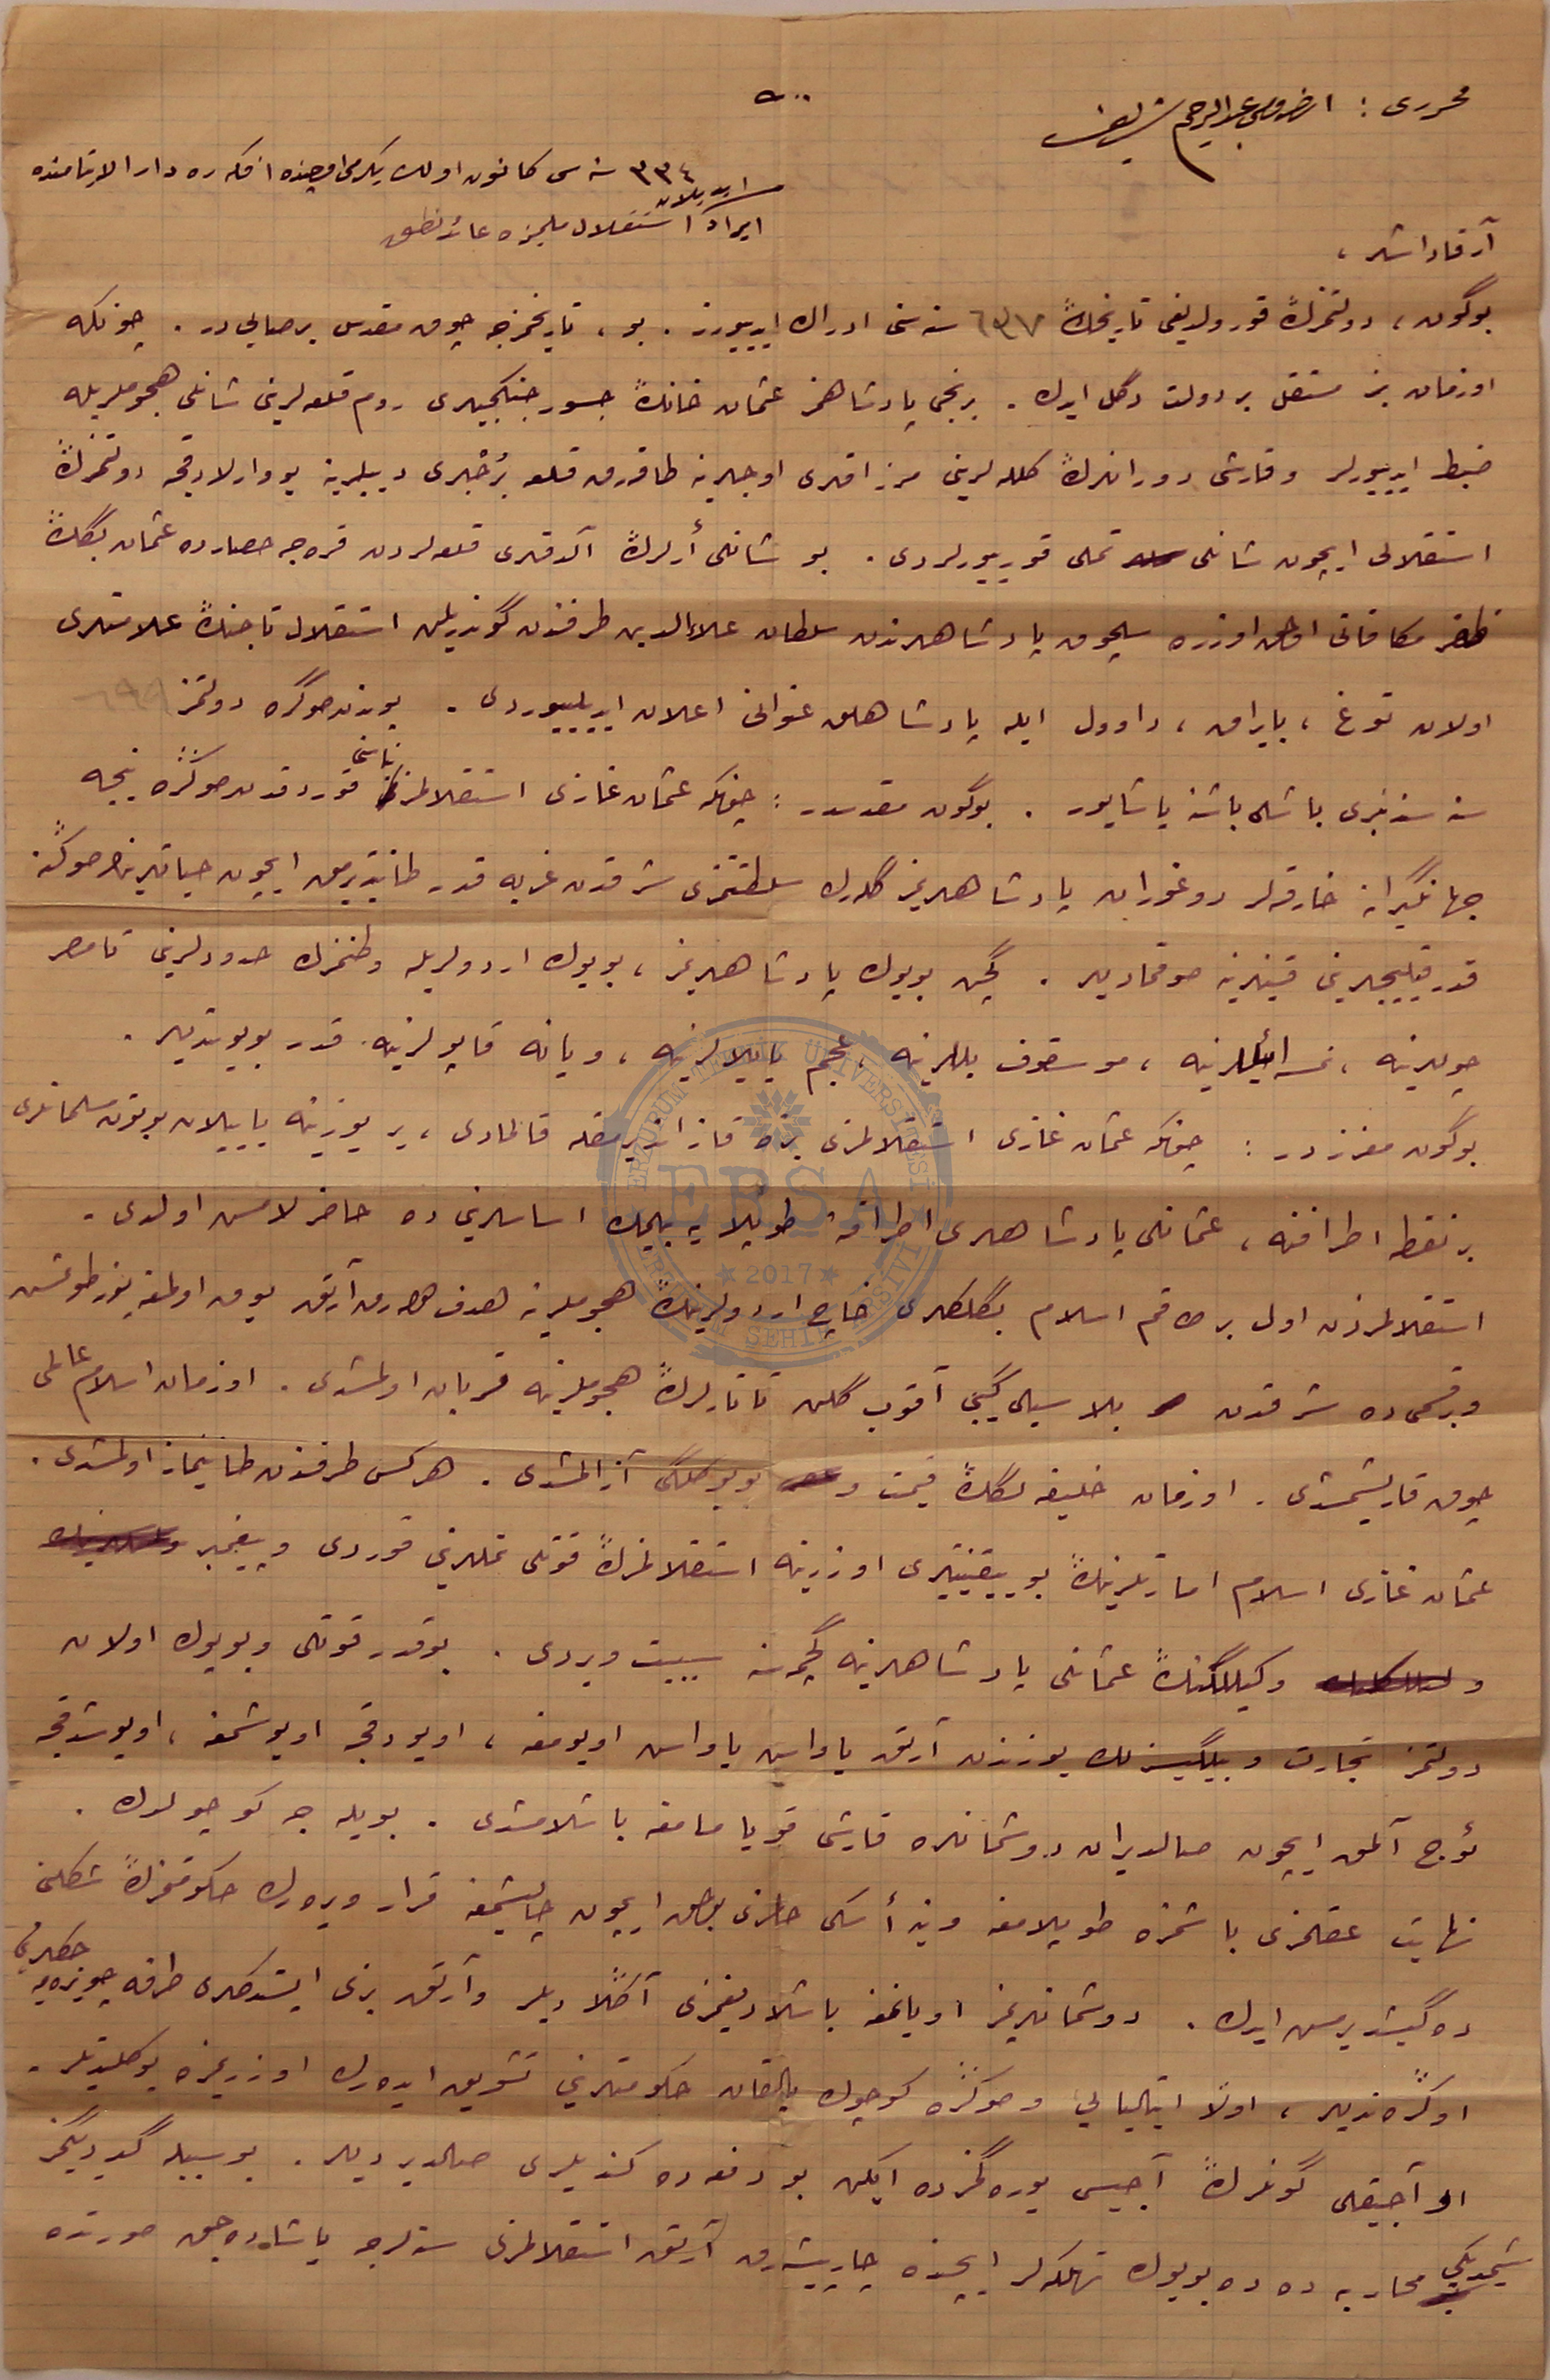 محرری : ارضرومی عبدالرحیم شریف
٣٣٤ سنه سی کانون اولك یکرمی اوچنده انقره دار الایتامنده
ایراد ایدیلان استقلال ملیمزه عائد نطق
آرقاداشلر ،
بوگون ، دولتمزڭ قورولدیغی تاریخڭ ٦٣٧ سنه سنی ادراك ایدییورز . بو ، تاریخمزجه چوق مقدس بر صایی در . چونکه
اوزمان بز مستقل بر دولت دگل ایدك . برنجی پادشاهمز عثمان خانڭ جسور جنگجیلری روم قلعه لرینی شانلی هجوملریله
ضبط ایدییورلر و قارشی دورانلرڭ کلله لرینی مزراقلری اوجلرینه طاقارق قلعه بُرجلری دیبلرینه یووارلادقجه دولتمزڭ
استقلالی ایچون شانلی تملی قورییورلردی . بو شانلی أرلرڭ آلدقلری قلعه لردن قره جه حصارده عثمان بگڭ
ظفر مکافاتی اولمق اوزره سلچوق پادشاهلرندن سلطان علاءالدین طرفندن گوندریلن استقلال تاجنڭ علامتلری
اولان توغ ، بایراق ، داوول ایله پادشاهلق عنوانی اعلان ایدیلییوردی . بوندن صوڭره دولتمز ٦٩٩
سنه سندنبری باشلی باشنه یاشایور . بوگون مقدسدر : چونکه عثمان غازی استقلالمزڭ بناسنی قوردقدن صوڭره نیجه
جهانگیرانه خارقه لر دوغوران پادشاهلریمز گله رك سلطنتمزی شرقدن غربه قدر طانیتدیرمق ایچون حیاتلرینڭ صوڭنه
قدر قیلیجلرینی قینلرینه صوقمادیلر . گچن بویوك پادشاهلریمز ، بویوك اردولریله وطنمزك حدودلرینی تا مصر
چوللرینه ، نمسه ایللرینه ، موسقوف بللرینه ، عجم یایلالرینه ، ویانه قاپولرینه قدر بویوتدیلر .
بوگون معززدر : چونکه عثمان غازی استقلالمزی بزه قازاندیرمقله قالمادی ، یر یوزینه یاییلان بوتون مسلمانلری
بر نقطه اطرافنه ، عثمانلی پادشاهلری اطرافنه طوپلایه بیلمك اساسلرینی ده حاضرلامش اولدی .
استقلالمزدن اول بر طاقم اسلام بگلكلری خاچ اردولرینڭ هجوملرینه هدف اوله رق آرتق یوق اولمغه یوز طوتمش
و بر قسمی ده شرقدن بلا سیلی گبی آقوب گلن تاتارلرڭ هجوملرینه قربان اولمشدی . اوزمان اسلام عالمی
چوق قاریشمشدی . اوزمان خلیفه لگڭ قیمت و بویوکلگی آزالمشدی . هرکس طرفندن طانینماز اولمشدی .
عثمان غازی اسلام امارتلرینڭ بو ییقینتیلری اوزرینه استقلالمزڭ قوتلی تملرینی قوردی و پیغمبر
و وکیللگنڭ عثمانلی پادشاهلرینه گچمسنه سببیت ویردی . بوقدر قوتلی و بویوك اولان
دولتمز تجارت و بیلگیسزلك یوزندن آرتق یاواش یاواش اویومغه ، اویودقجه اویوشمغه ، اویوشدقجه
ئوج آلمق ایچون صالدیران دوشمانلره قارشی قویامامغه باشلامشدی . بویله جه کوچولدك .
نهایت عقلمزی باشمزه طوپلامغه و ینه أسکی حالمزی بولمق ایچون چالیشمغه قرار ویره رك حکومتمزڭ شکلنی
ده گیشدیرمش ایدك . دوشمانلریمز اویانمغه باشلادیغمزی آڭلادیلر و آرتق بزی ایستدکلری طرفه چویره میه جکلرینی
اوگره ندیلر ، اولا ایتالیایی و صوڭره کوچوك بالقان حکومتلرینی تشویق ایده رك اوزریمزه یوکلندیلر .
او آجیقلی گونلرڭ آجیسی یوره گمزده ایکن بو دفعه ده کندیلری صالدیردیلر . بو سببله گیردیگمز
شیمدیکی محاربه ده ده بویوك تهلکه لر ایچنده چارپیشه رق آرتق استقلالمزی سنه لرجه یاشاده جق صورتده
ERZURUM TEKNİK ÜNİVERSİTESİ
EBSA
2017
ERZURUM ŞEHİR ARŞİVİ